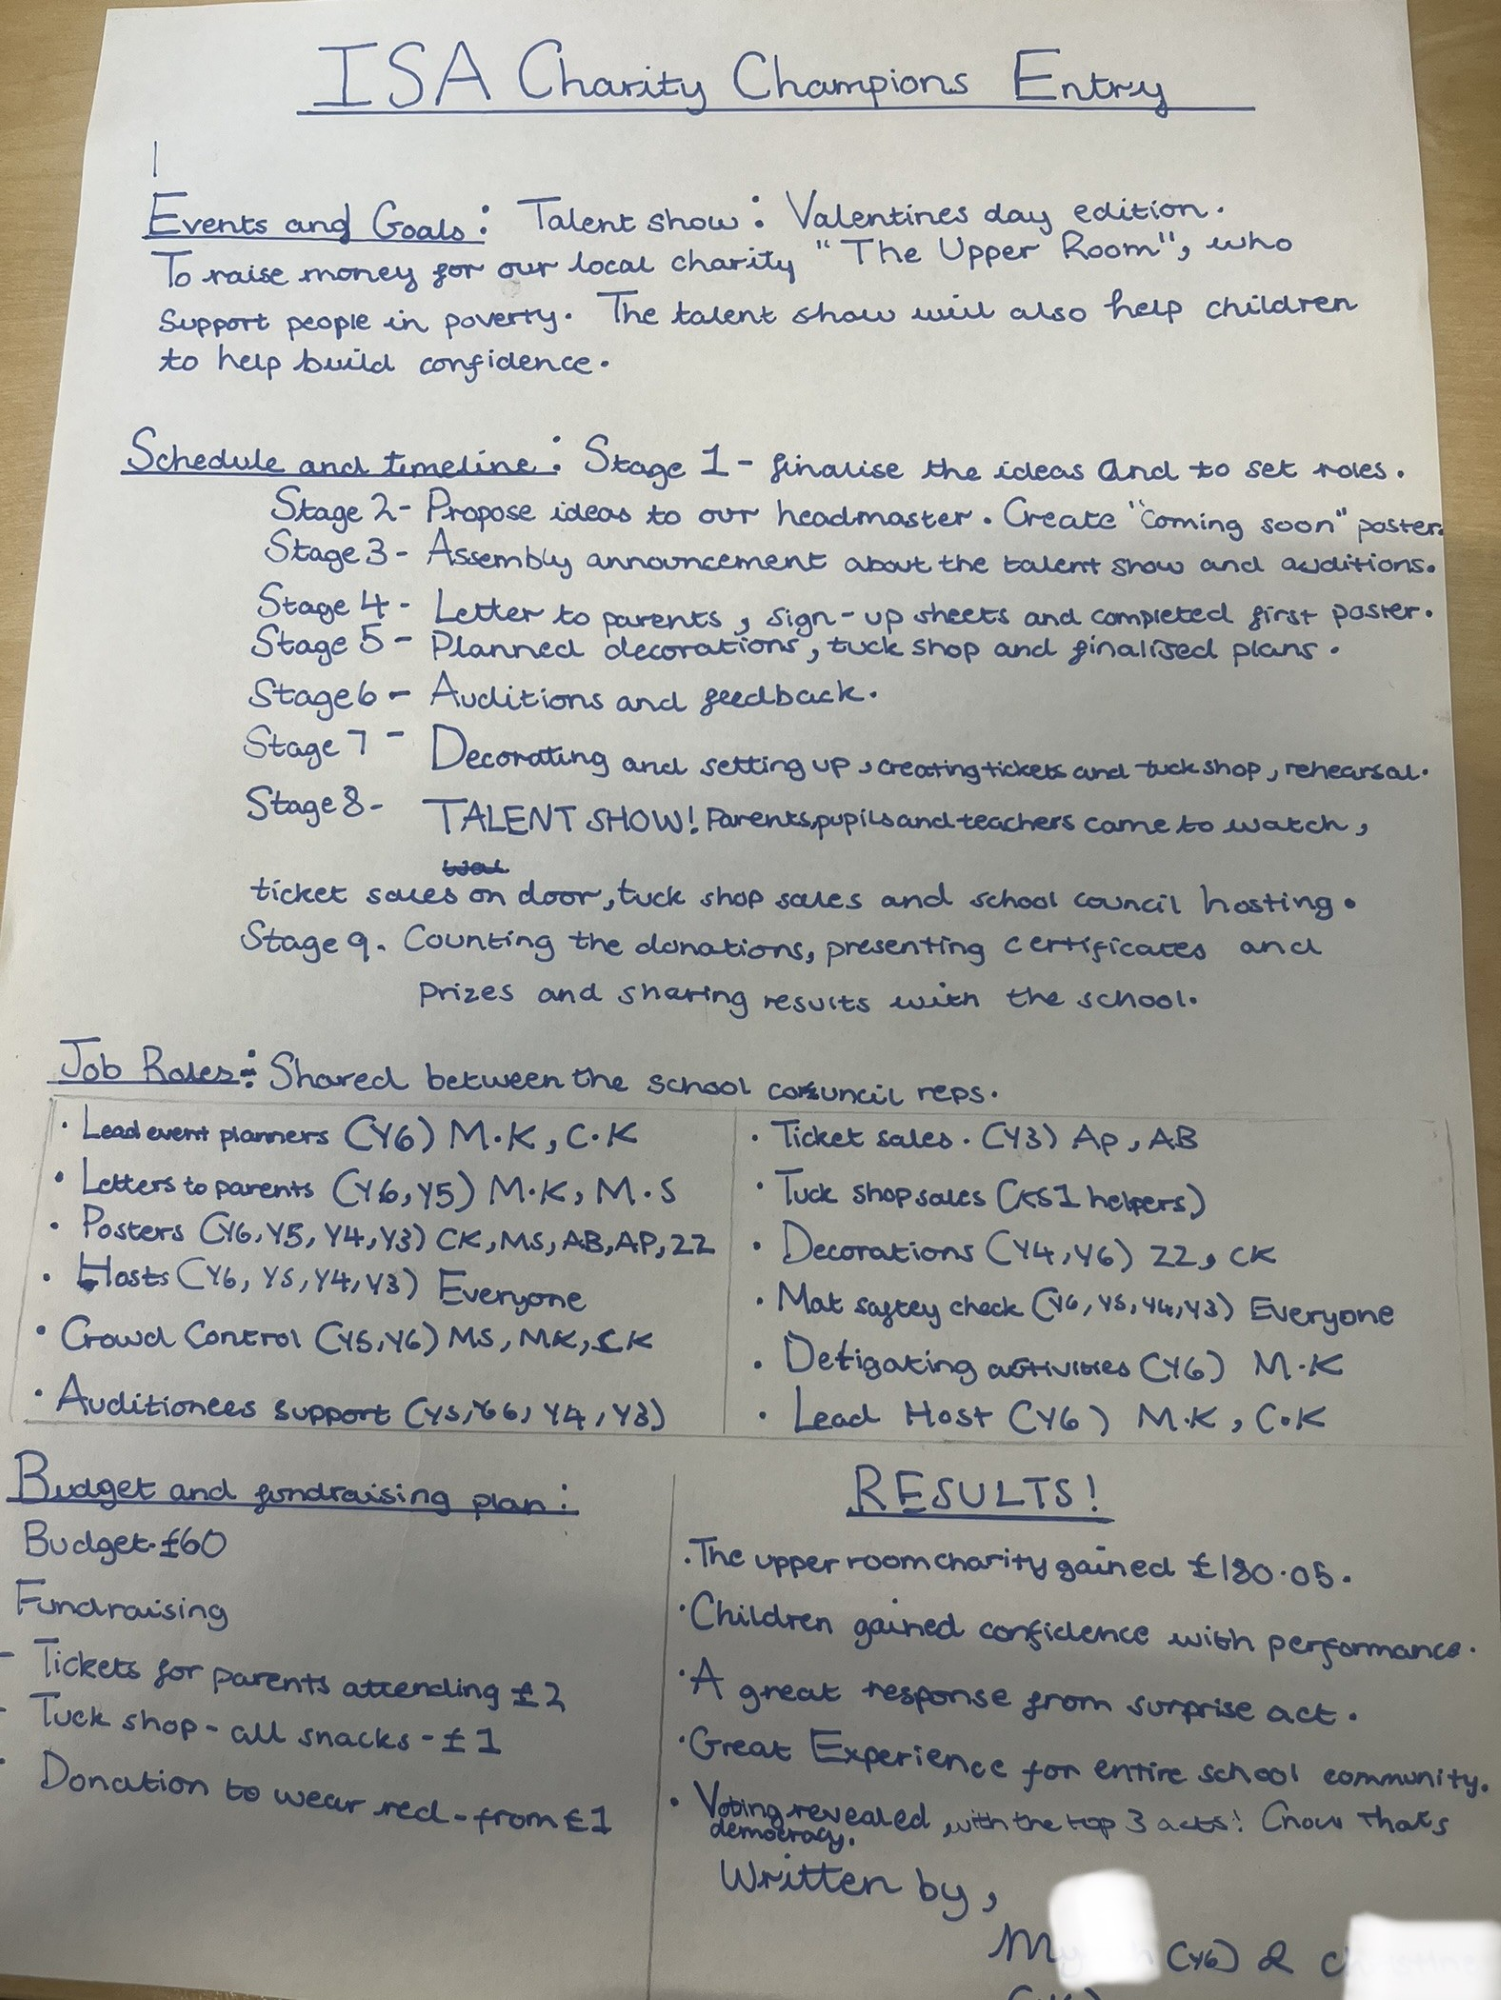 ISA Charity Champions Entry
Events and Goals: Talent show: Valentines day edition.
To raise money for our local charity "The Upper Room", who
support people in poverty. The talent show will also help children
to help build confidence.
Schedule and timeline: Stage 1 - finalise the ideas and to set roles.
Stage 2- Propose ideas to our headmaster. Create "coming soon" poster.
Stage 3 - Assembly announcement about the talent show and auditions.
Stage 4 - Letter to parents, sign-up sheets and completed first poster.
Stage 5 - Planned decorations, tuck shop and finalised plans.
Stage 6 - Auditions and feedback.
Stage 7 - Decorating and setting up, creating tickets and tuck shop, rehearsal.
Stage 8 - TALENT SHOW! Parents, pupils and teachers came to watch,
ticket sales on door, tuck shop sales and school council hosting.
Stage 9. Counting the donations, presenting certificates and
prizes and sharing results with the school.
Job Roles: Shared between the school council reps.
· Lead event planners (Y6) M.K, C.K
· Letters to parents (Y6, Y5) M.K, M.S
· Posters (Y6, Y5, Y4, Y3) CK, MS, AB, AP, ZZ
· Hosts (Y6, Y5, Y4, Y3) Everyone
· Crowd Control (Y5, Y6) MS, MK, CK
· Auditionees support (Y5, Y6, Y4, Y3)
· Ticket sales. (Y3) Ap, AB
· Tuck shop sales (KS1 helpers)
· Decorations (Y4, Y6) ZZ, CK
· Mat saftey check (Y6, Y5, Y4, Y3) Everyone
· Deligating activities (Y6) M.K
· Lead Host (Y6) M.K, C.K
Budget and fundraising plan:
Budget-£60
Fundraising
- Tickets for parents attending £2
- Tuck shop - all snacks - £1
- Donation to wear red - from £1
RESULTS!
· The upper room charity gained £180.05.
· Children gained confidence with performance.
· A great response from surprise act.
· Great Experience for entire school community.
· Voting revealed, with the top 3 acts! (now thats
democracy.
Written by,
My (Y6) &